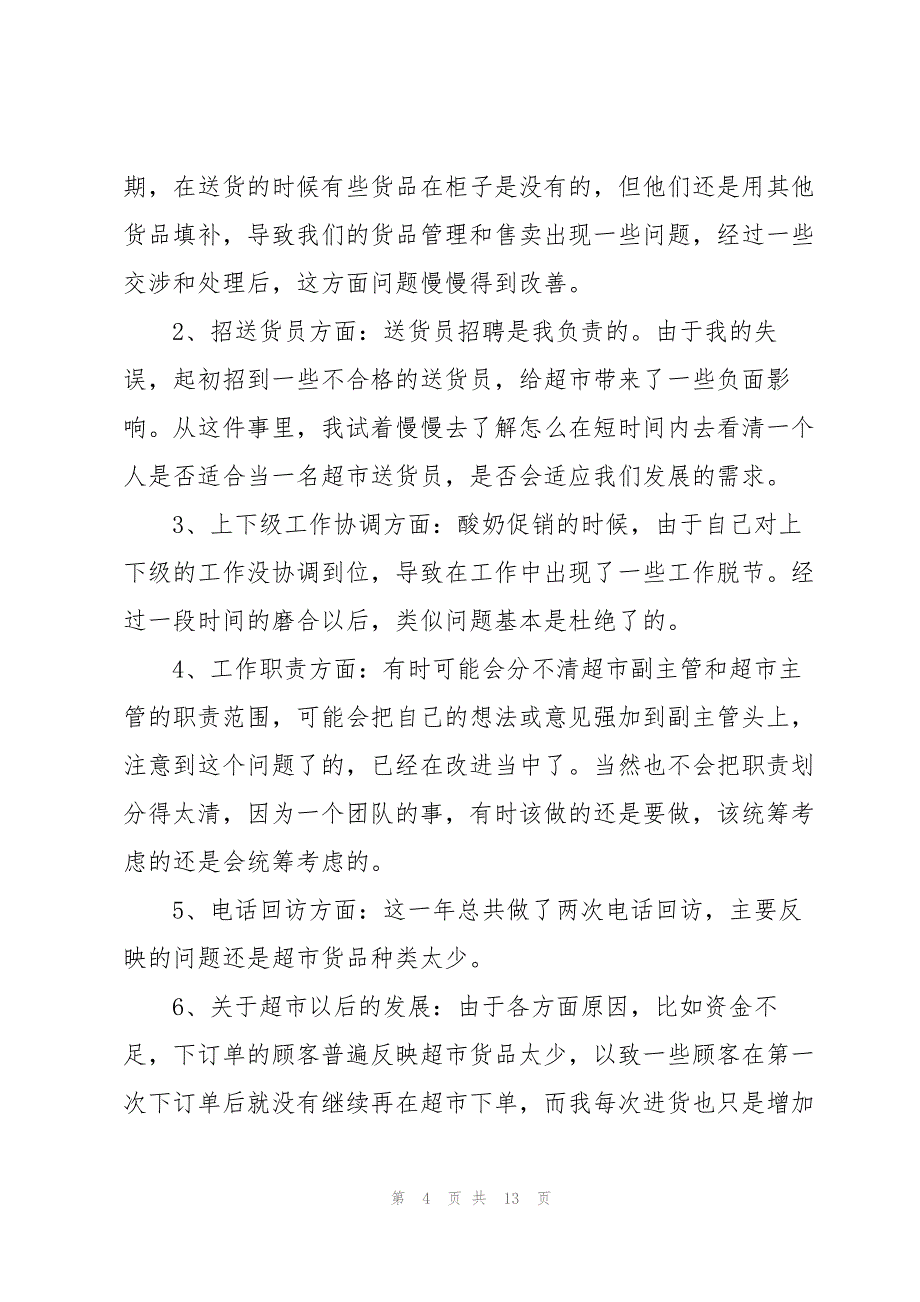 期，在送货的时候有些货品在柜子是没有的，但他们还是用其他
货品填补，导致我们的货品管理和售卖出现一些问题，经过一些
交涉和处理后，这方面问题慢慢得到改善。
2、招送货员方面：送货员招聘是我负责的。由于我的失
误，起初招到一些不合格的送货员，给超市带来了一些负面影
响。从这件事里，我试着慢慢去了解怎么在短时间内去看清一个
人是否适合当一名超市送货员，是否会适应我们发展的需求。
3、上下级工作协调方面：酸奶促销的时候，由于自己对上
下级的工作没协调到位，导致在工作中出现了一些工作脱节。经
过一段时间的磨合以后，类似问题基本是杜绝了的。
4、工作职责方面：有时可能会分不清超市副主管和超市主
管的职责范围，可能会把自己的想法或意见强加到副主管头上，
注意到这个问题了的，已经在改进当中了。当然也不会把职责划
分得太清，因为一个团队的事，有时该做的还是要做，该统筹考
虑的还是会统筹考虑的。
5、电话回访方面：这一年总共做了两次电话回访，主要反
映的问题还是超市货品种类太少。
6、关于超市以后的发展：由于各方面原因，比如资金不
足，下订单的顾客普遍反映超市货品太少，以致一些顾客在第一
次下订单后就没有继续再在超市下单，而我每次进货也只是增加
第 4 页 共 13 页